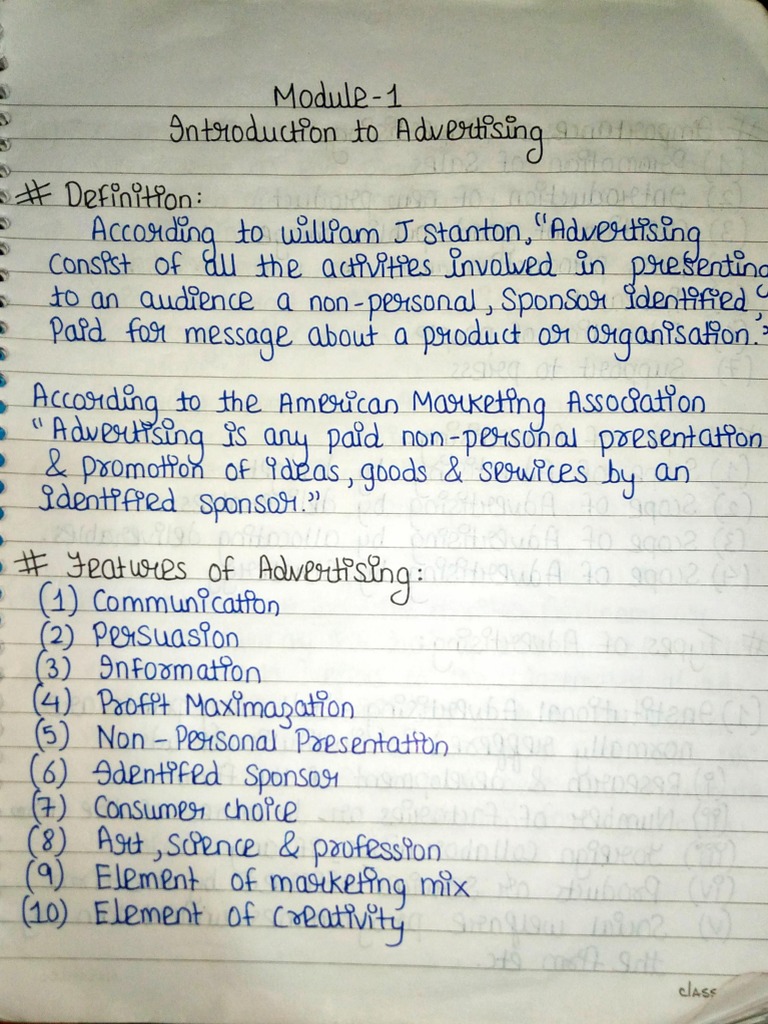 Module-1
Introduction to Advertising
# Definition:
According to William J Stanton, "Advertising
consist of all the activities involved in presenting
to an audience a non-personal, sponsor identified,
paid for message about a product or organisation."
According to the American Marketing Association
"Advertising is any paid non-personal presentation
& promotion of ideas, goods & services by an
identified sponsor."
# Features of Advertising:
(1) Communication
(2) Persuasion
(3) Information
(4) Profit Maximazation
(5) Non-Personal Presentation
(6) Identifed Sponsor
(7) Consumer choice
(8) Art, Science & profession
(9) Element of marketing mix
(10) Element of Creativity
class